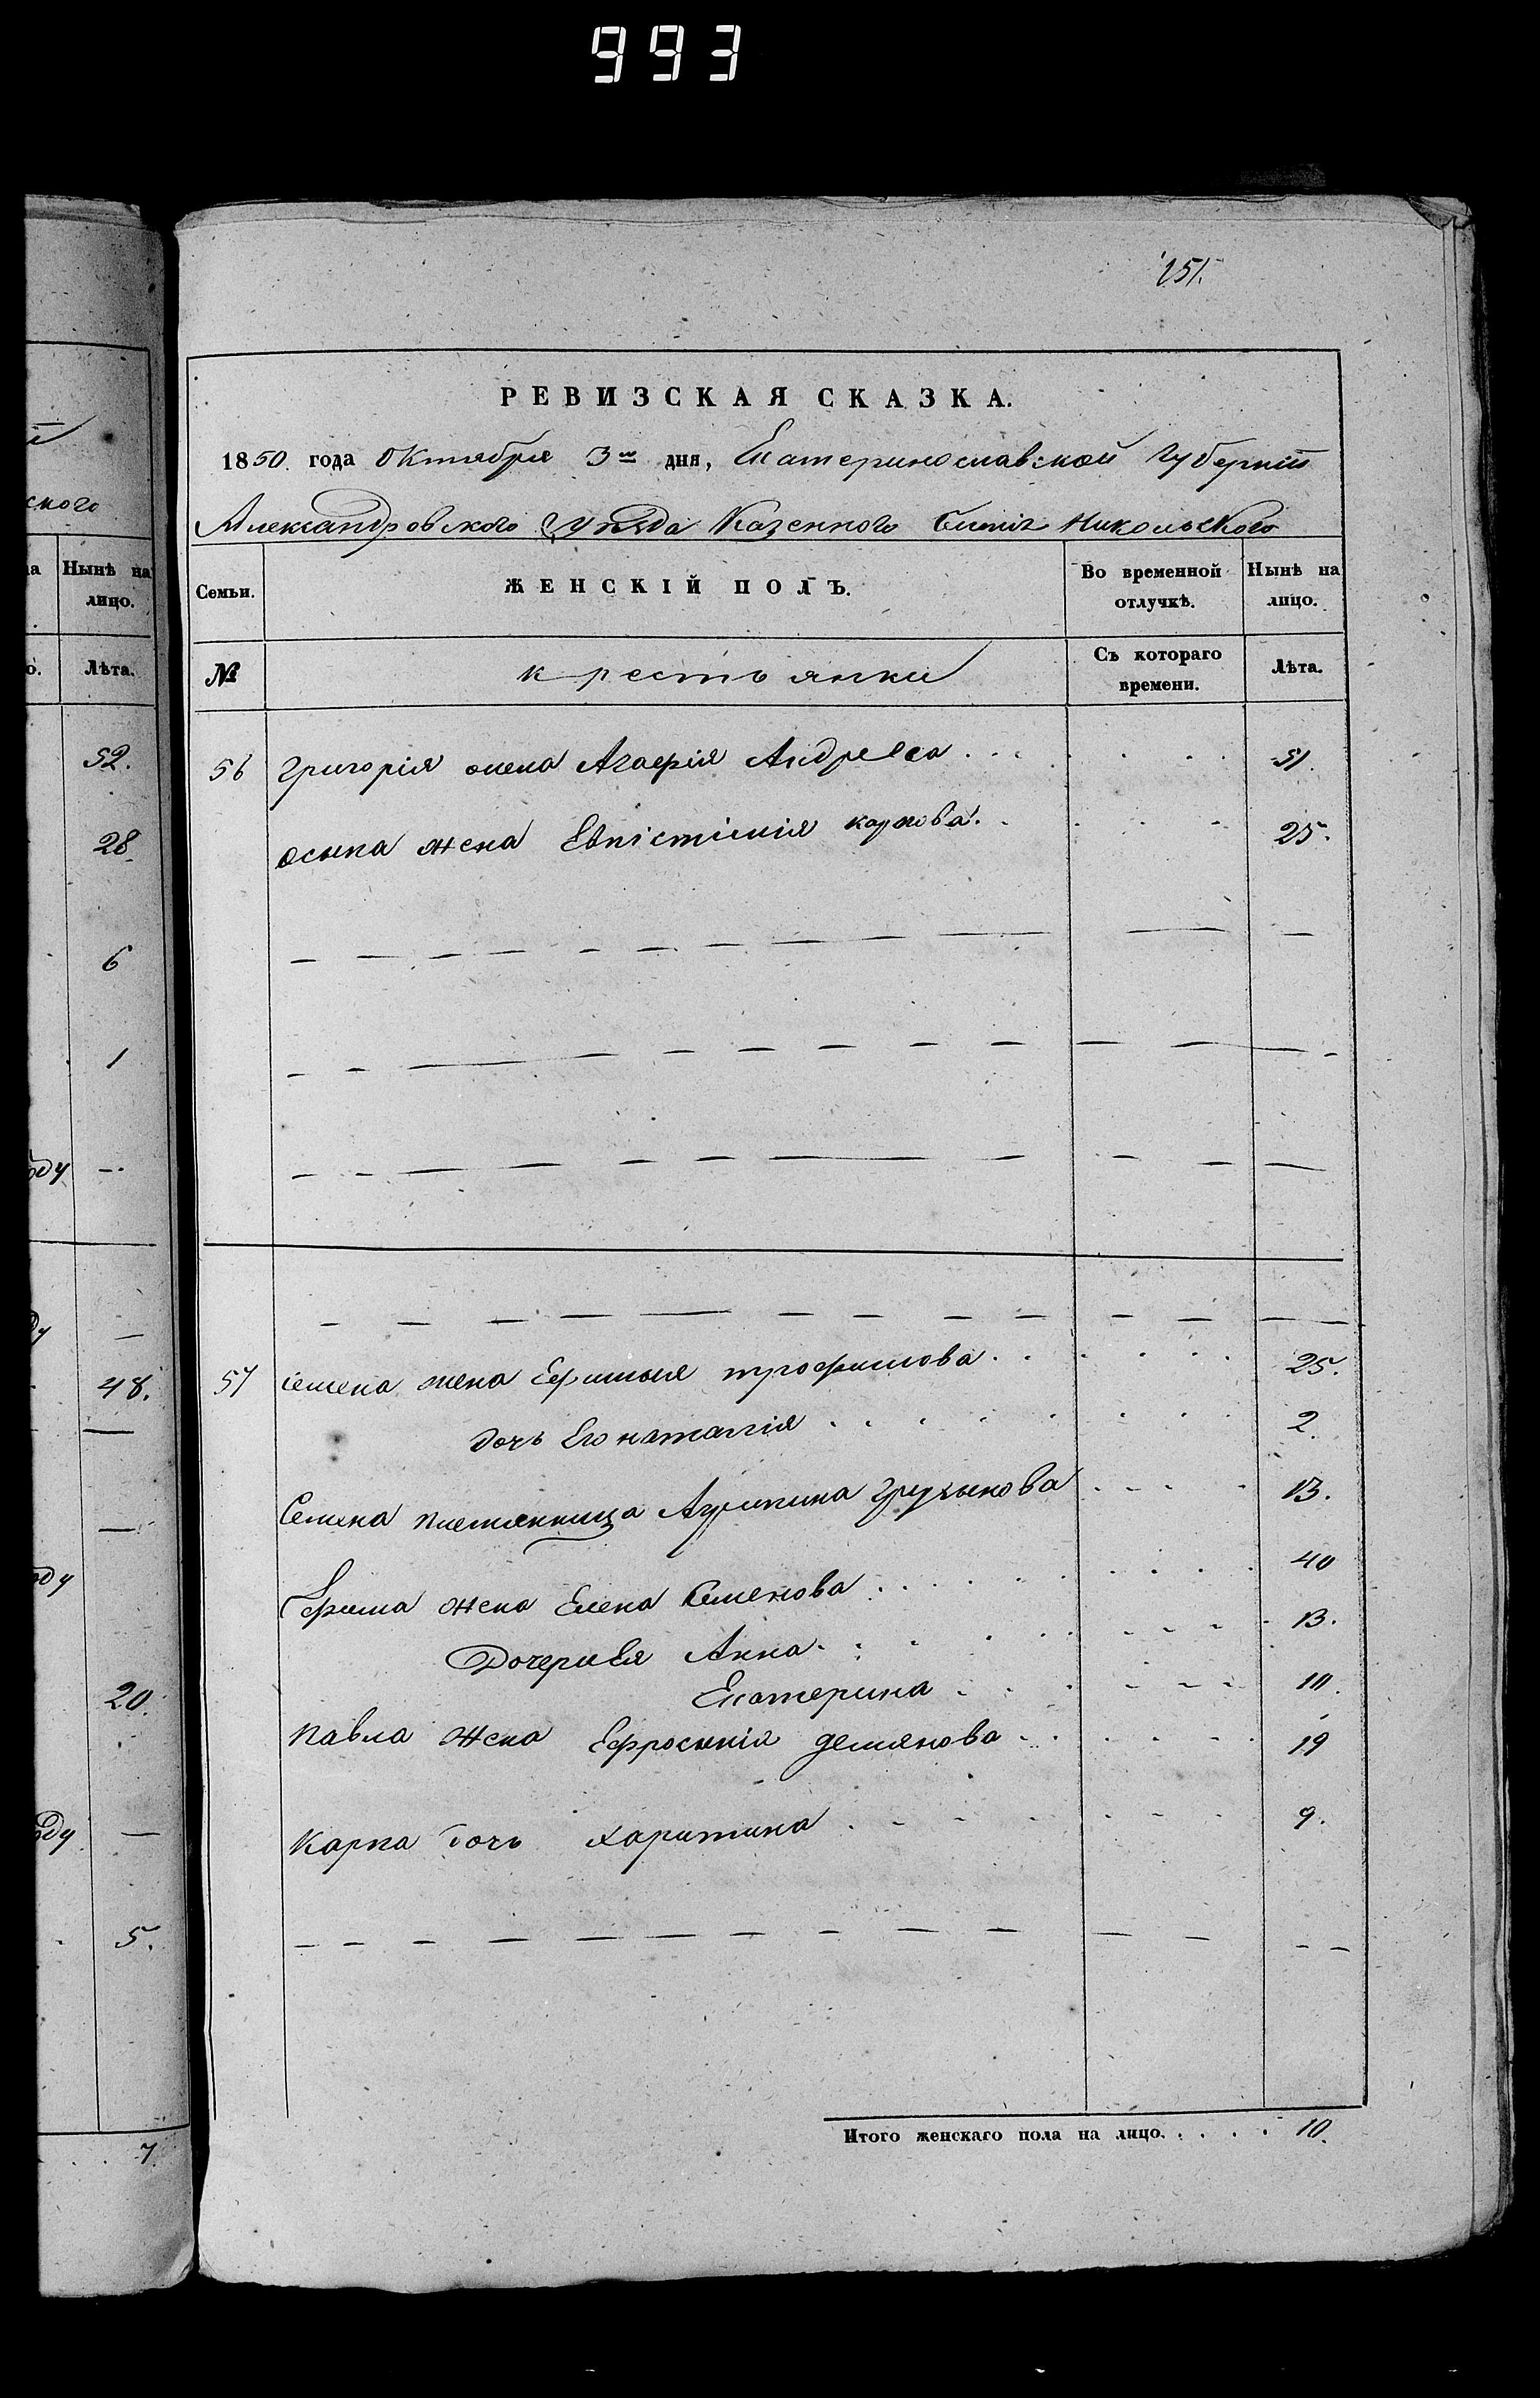 993
ского
Нынѣ на
лицо.
Лѣта.
52.
28.
6
1
оду —.
ду —
48.
—
—
оду
20.
оду —
5.
7
151.
РЕВИЗСКАЯ СКАЗКА.
1850. года Октября 3го дня, Екатеринославской Губерніи
Александровского Уѣзда Казенного Никольского
Семьи. ЖЕНСКІЙ ПОЛЪ. Во временной отлучкѣ. Нынѣ на лицо.
№ крестьянки Съ котораго времени. Лѣта.
56 Григорія жена Агафія Андреева 51.
Осыпа жена Карпова. 25.
57 Семена жена Ефимья трофимова 25.
дочь Его наталія 2.
Семена племянница Агрипина 13.
Ефима жена Елена Семенова 40
Дочери Ея Анна 13.
Екатерина 10.
Павла жена Ефросынія демянова 19
Карпа дочь Харитина 9.
Итого женскаго пола на лицо. 10.